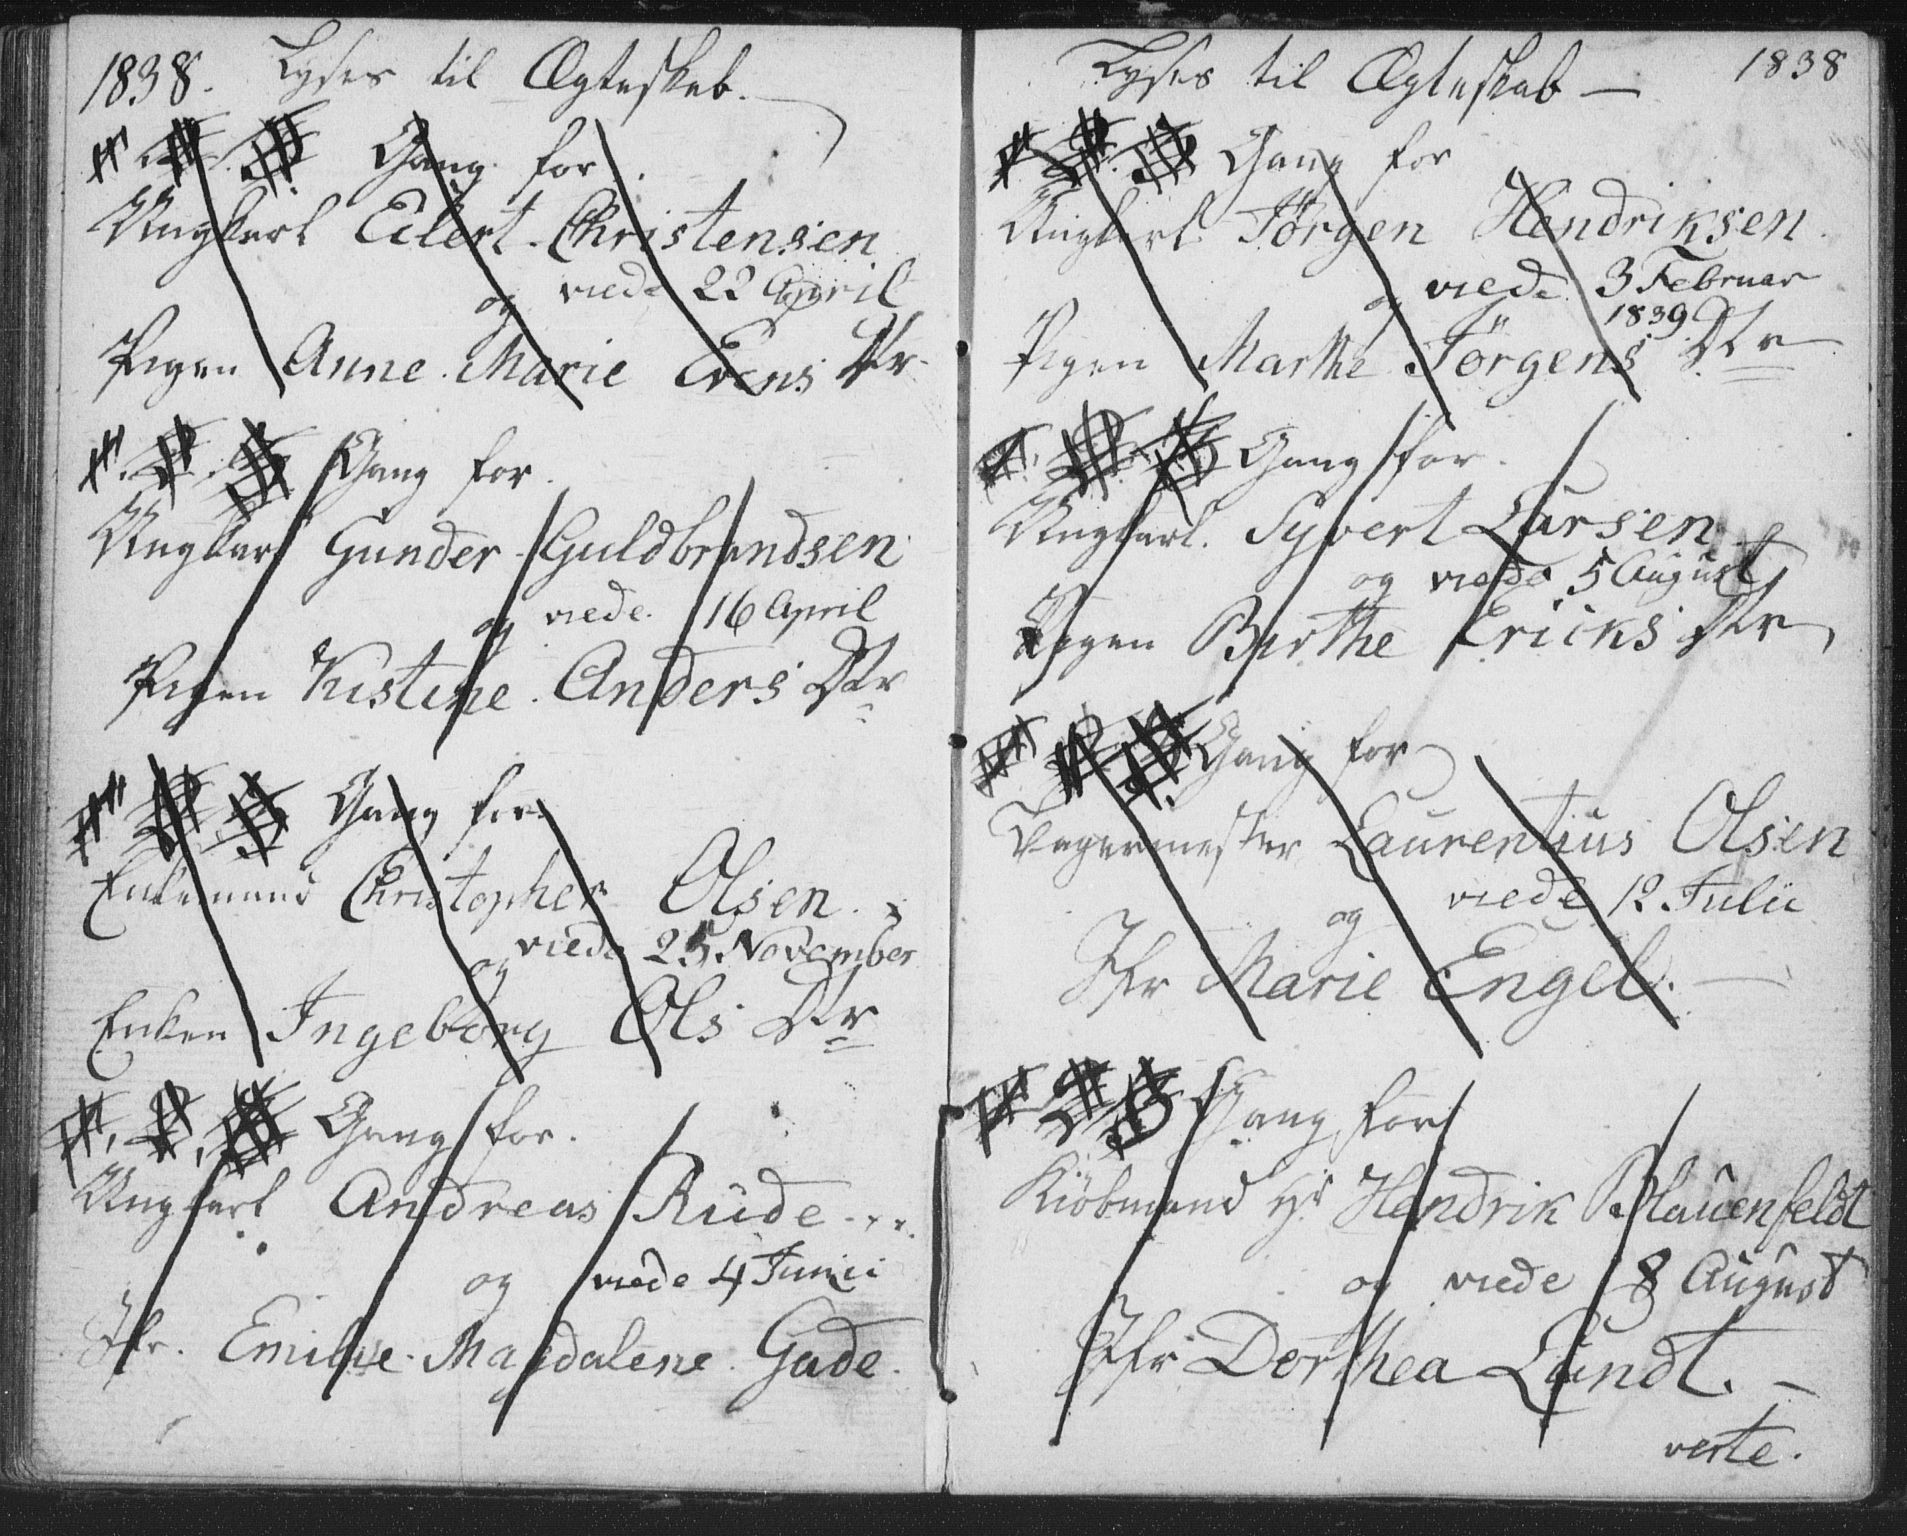 1838. Lyses til Ægteskab.
1. 2. 3 Gang for
Ungkarl Eilert Christensen
og viede 22 April
Pigen Anne Marie Evens Dtr
1. 2. 3 Gang for
Ungkarl Gunder Guldbrandsen
og viede 16 April
Pigen Kistine Anders Dtr
1. 2. 3 Gang for
Enkemand Christopher Olsen
og viede 25 November
Enken Ingeborg Ols Dtr
1. 2. 3 Gang for
Ungkarl Andreas Rude
og viede 4 Junii
Jfr. Emilie Magdalene Gade.
Lyses til Ægteskab — 1838
1. 2. 3 Gang for
Ungkarl Jörgen Hendriksen
og viede 3 Februar
1839
Pigen Marthe Jörgens Dtr
1. 2. 3 Gang for
Ungkarl Syvert Larsen
og viede 5 August
Pigen Birthe Ericks Dtr
1. 2. 3 Gang for
Laurentius Olsen
og viede 12 Julii
Jfr Marie Engel. —
1. 2. 3 Gang for
Kiöbmand Hr Hendrik Blauenfeldt
og viede 8 August
Jfr Dorthea Lund. —
verte.